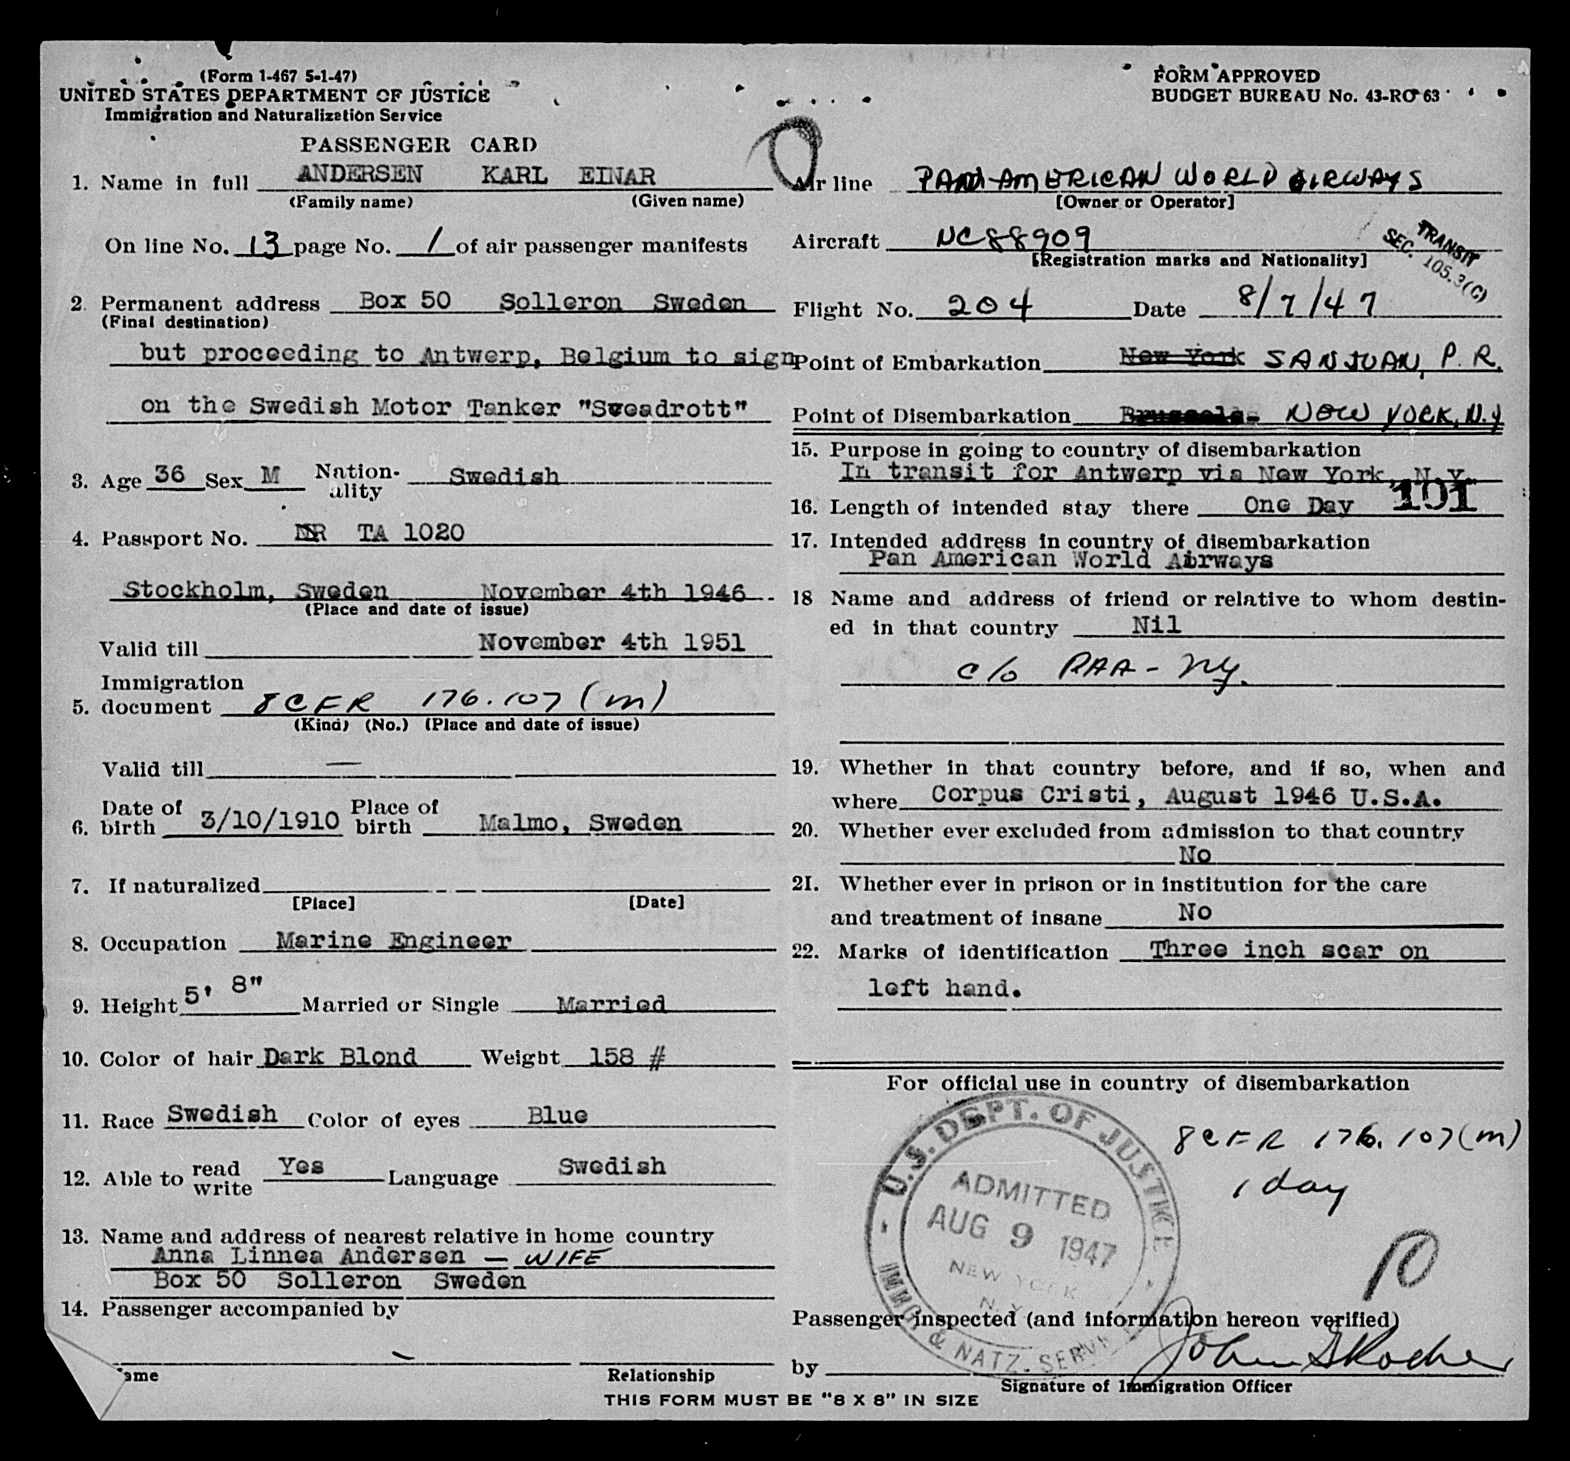 (Form 1-467 5-1-47)
UNITED STATES DEPARTMENT OF JUSTICE
Immigration and Naturalization Service
FORM APPROVED
BUDGET BUREAU No. 43-RO 63
PASSENGER CARD
1. Name in full ANDERSEN KARL EINAR
(Family name) (Given name)
On line No. 13 page No. 1 of air passenger manifests
2. Permanent address Box 50 Solleron Sweden
(Final destination)
but proceeding to Antwerp, Belgium to sign
on the Swedish Motor Tanker "Sveadrott"
3. Age 36 Sex M Nation-ality Swedish
4. Passport No. NR TA 1020
Stockholm, Sweden November 4th 1946
(Place and date of issue)
Valid till November 4th 1951
5. Immigration document 8 CFR 176.107(m)
(Kind) (No.) (Place and date of issue)
Valid till —
6. Date of birth 3/10/1910 Place of birth Malmo, Sweden
7. If naturalized
[Place] [Date]
8. Occupation Marine Engineer
9. Height 5' 8" Married or Single Married
10. Color of hair Dark Blond Weight 158 #
11. Race Swedish Color of eyes Blue
12. Able to read write Yes Language Swedish
13. Name and address of nearest relative in home country
Anna Linnea Andersen — WIFE
Box 50 Solleron Sweden
14. Passenger accompanied by
Name Relationship
Air line PAN AMERICAN WORLD AIRWAYS
[Owner or Operator]
Aircraft NC88909
[Registration marks and Nationality]
TRANSIT
SEC. 105.3(C)
Flight No. 204 Date 8/7/47
Point of Embarkation New York SAN JUAN, P.R.
Point of Disembarkation Brussels NEW YORK, N.Y.
15. Purpose in going to country of disembarkation
In transit for Antwerp via New York, N.Y.
16. Length of intended stay there One Day 101
17. Intended address in country of disembarkation
Pan American World Airways
18 Name and address of friend or relative to whom destin-
ed in that country Nil
c/o PAA - NY.
19. Whether in that country before, and if so, when and
where Corpus Cristi, August 1946 U.S.A.
20. Whether ever excluded from admission to that country
No
21. Whether ever in prison or in institution for the care
and treatment of insane No
22. Marks of identification Three inch scar on
left hand.
For official use in country of disembarkation
8 CFR 176.107(m)
1 day
U.S. DEPT. OF JUSTICE
ADMITTED
AUG 9 1947
NEW YORK
N.Y.
IMMG. & NATZ. SERVICE
Passenger inspected (and information hereon verified)
by
Signature of Immigration Officer
THIS FORM MUST BE "8 X 8" IN SIZE